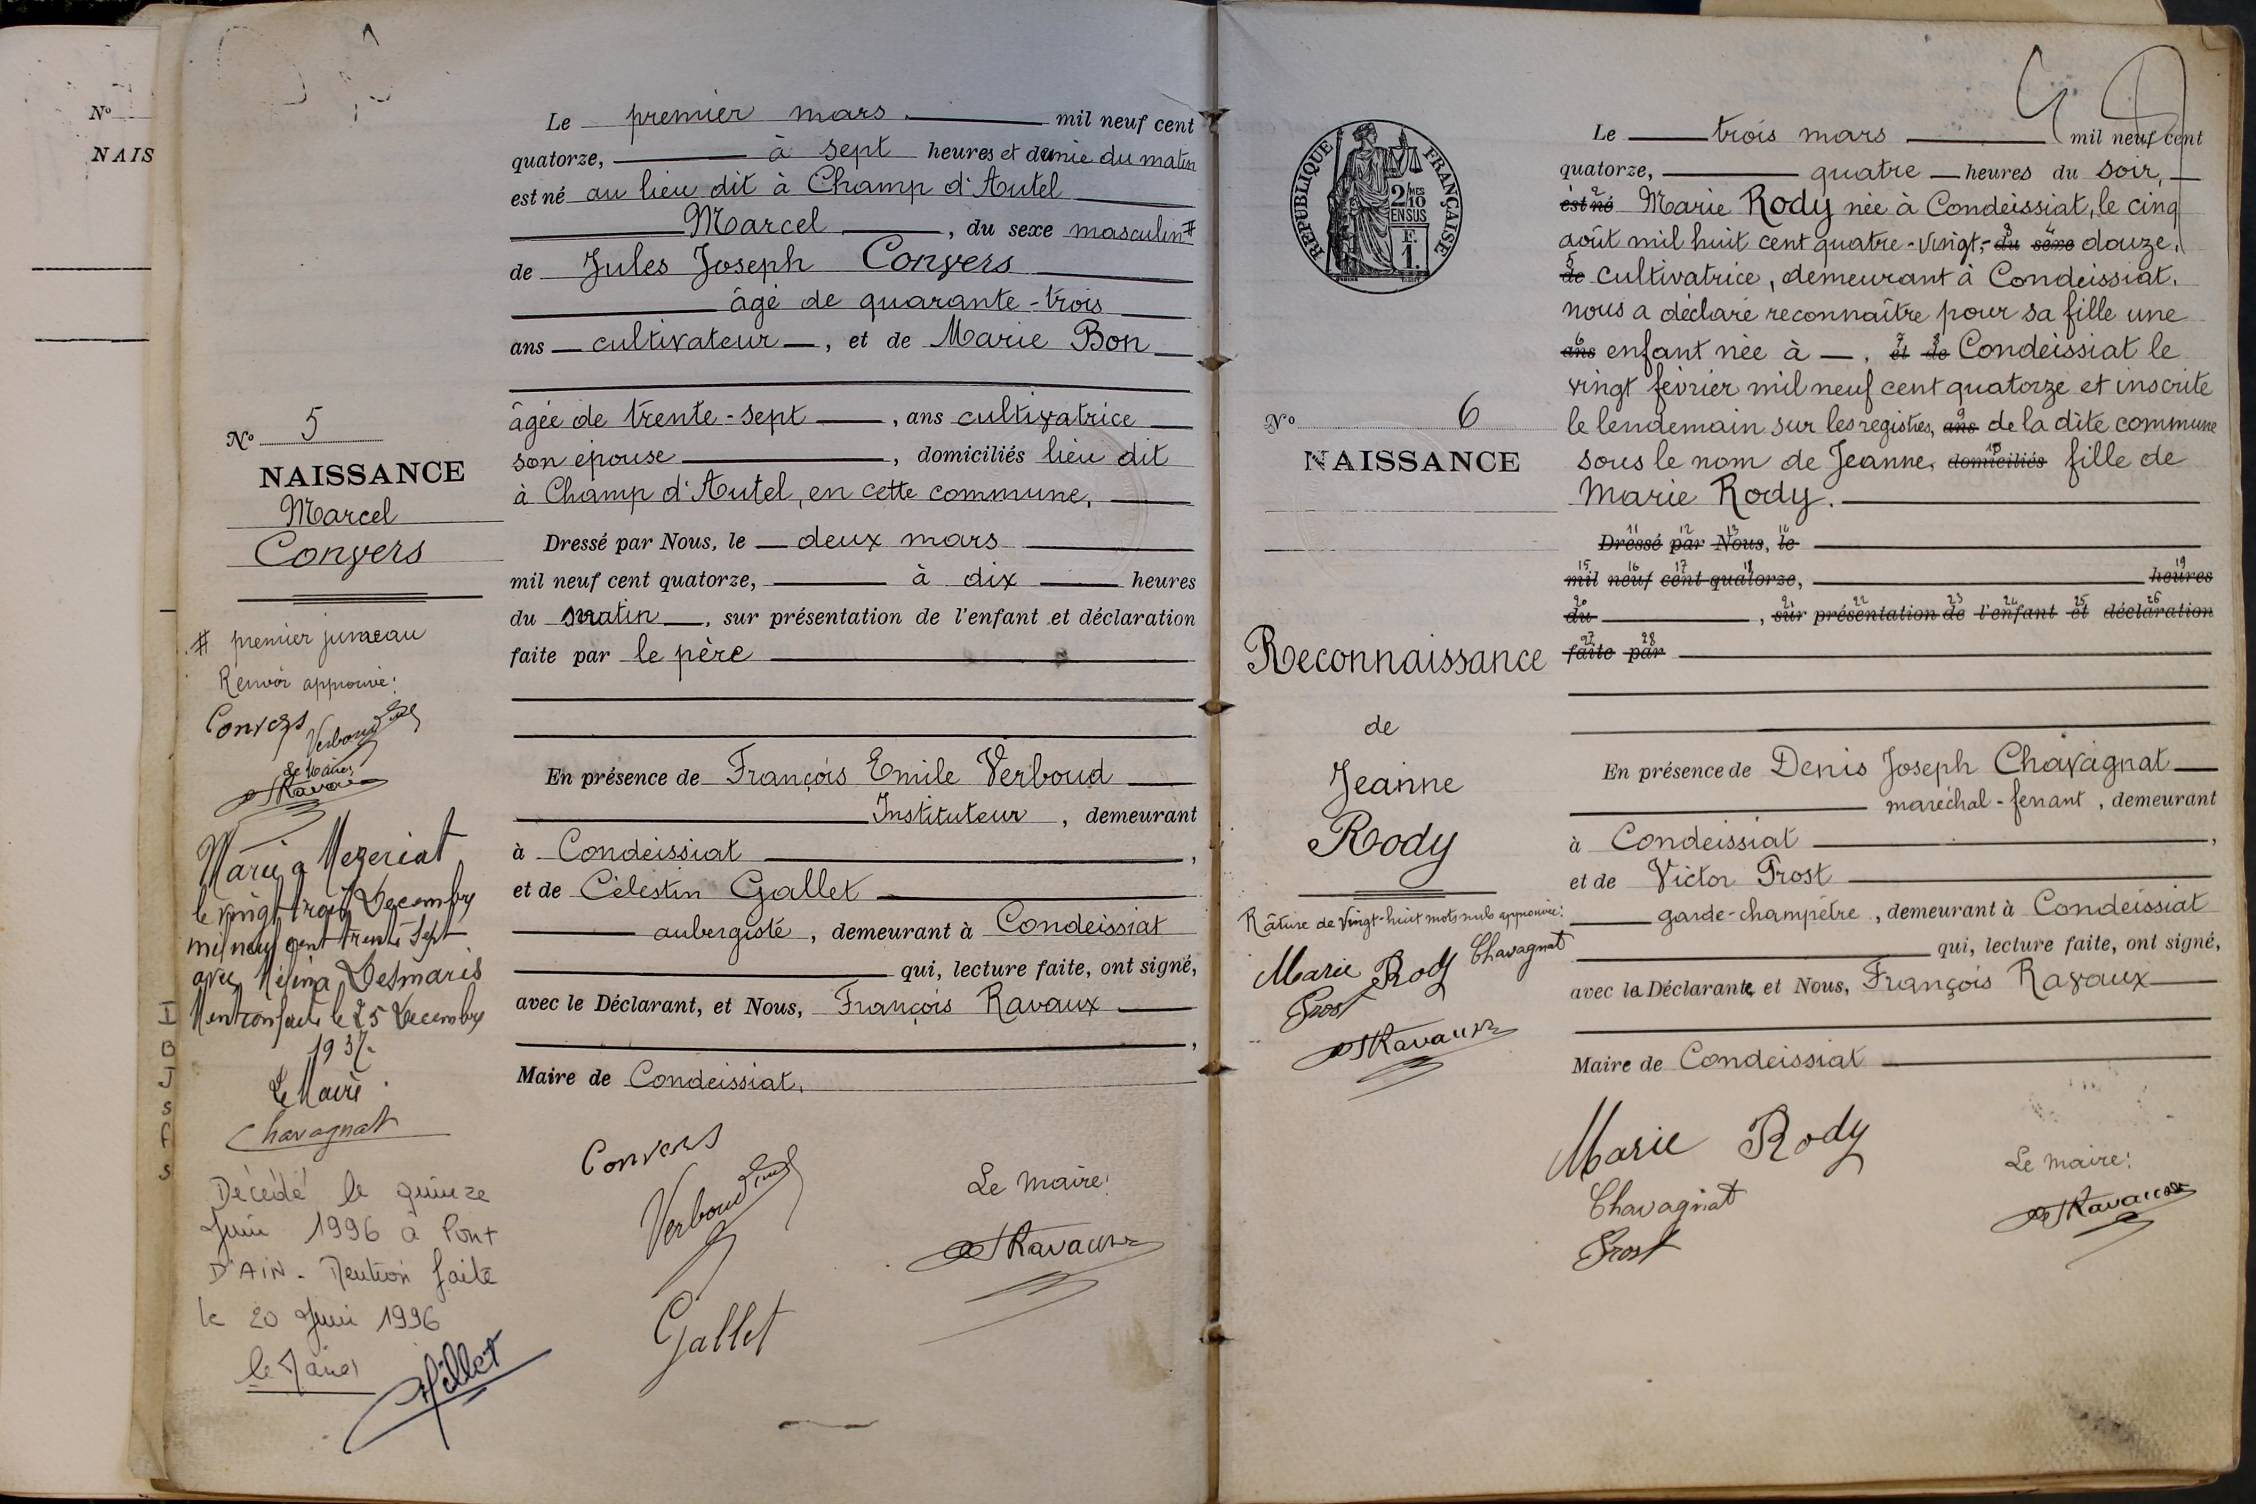 Nº
NAIS
Le premier mars mil neuf cent
quatorze, à sept heures et demie du matin
est né au lieu dit à Champ d'Autel
Marcel, du sexe masculin #
de Jules Joseph Convers
âgé de quarante-trois
ans cultivateur, et de Marie Bon
âgée de trente-sept, ans cultivatrice
son épouse, domiciliés lieu dit
à Champ d'Autel, en cette commune,
Dressé par Nous, le deux mars
mil neuf cent quatorze, à dix heures
du matin, sur présentation de l'enfant et déclaration
faite par le père
En présence de François Emile Verboud
Instituteur, demeurant
à Condeissiat,
et de Célestin Gallet
aubergiste, demeurant à Condeissiat
qui, lecture faite, ont signé,
avec le Déclarant, et Nous, François Ravaux
,
Maire de Condeissiat.
Convers
Verboud
Le maire:
Ravaux
Gallet
Nº 5
NAISSANCE
Marcel
Convers
# premier jumeau
Renvoi approuvé:
Convers
Verboud
Le Maire,
Ravaux
Marié à Mezeriat
le vingt trois Decembre
mil neuf cent trente sept
avec Mélina Desmaris
Mention faite le 25 Decembre
1937.
Le Maire
Chavagnat
Décédé le quinze
Juin 1996 à Pont
D'AIN. Mention faite
le 20 Juin 1996
le Maire
I
B
J
S
A
S
RÉPUBLIQUE FRANÇAISE
2/10 MES
EN SUS
F.
1.
Le trois mars mil neuf cent
quatorze, quatre heures du soir,
est né Marie Rody née à Condeissiat, le cinq
août mil huit cent quatre-vingt- du sexe douze,
de cultivatrice, demeurant à Condeissiat.
nous a déclaré reconnaître pour sa fille une
ans enfant née à, et de Condeissiat le
vingt février mil neuf cent quatorze et inscrite
le lendemain sur les registres, ans de la dite commune
sous le nom de Jeanne, domiciliés fille de
Marie Rody.
Dressé par Nous, le
mil neuf cent quatorze, heures
du, sur présentation de l'enfant et déclaration
faite par
En présence de Denis Joseph Chavagnat
maréchal-ferrant, demeurant
à Condeissiat,
et de Victor Prost
garde-champêtre, demeurant à Condeissiat
qui, lecture faite, ont signé,
avec la Déclarante, et Nous, François Ravaux
Maire de Condeissiat
Marie Rody
Chavagnat
Prost
Le maire:
Ravaux
Nº 6
NAISSANCE
Reconnaissance
de
Jeanne
Rody
Râture de vingt-huit mots nuls approuvée:
Marie Rody Chavagnat
Prost
Ravaux